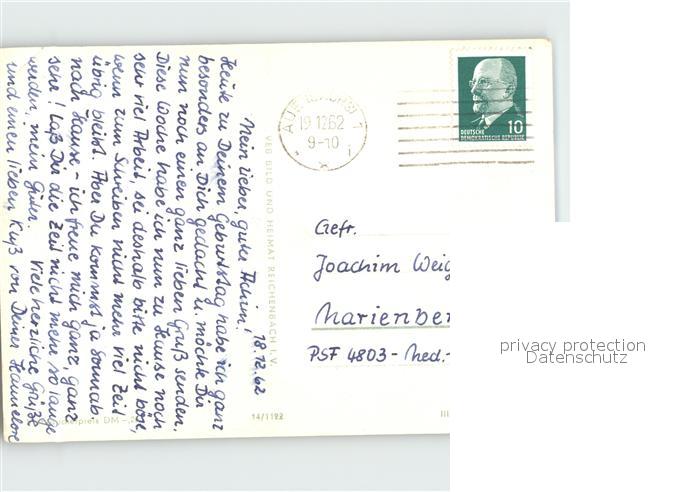 18.12.62
Mein lieber, guter Achim!
Heute zu Deinem Geburtstag habe ich ganz
besonders an Dich gedacht u. möchte Dir
nun noch einen ganz lieben Gruß senden.
Diese Woche habe ich nun zu Hause noch
sehr viel Arbeit, sei deshalb bitte nicht böse,
wenn zum Schreiben nicht mehr viel Zeit
übrig bleibt. Aber Du kommst ja Sonnab.
nach Hause - ich freue mich ganz, ganz
sehr! Laß Dir die Zeit nicht mehr so lange
werden, mein Guter. Viele herzliche Grüße
und einen lieben Kuß von Deiner Hannelore
VEB BILD UND HEIMAT REICHENBACH I. V.
19.12.62
9-10
DEUTSCHE
DEMOKRATISCHE REPUBLIK
10
Gefr.
Joachim Weig
Marienber
PSF 4803 - Med.-
14/1122
III
privacy protection
Datenschutz